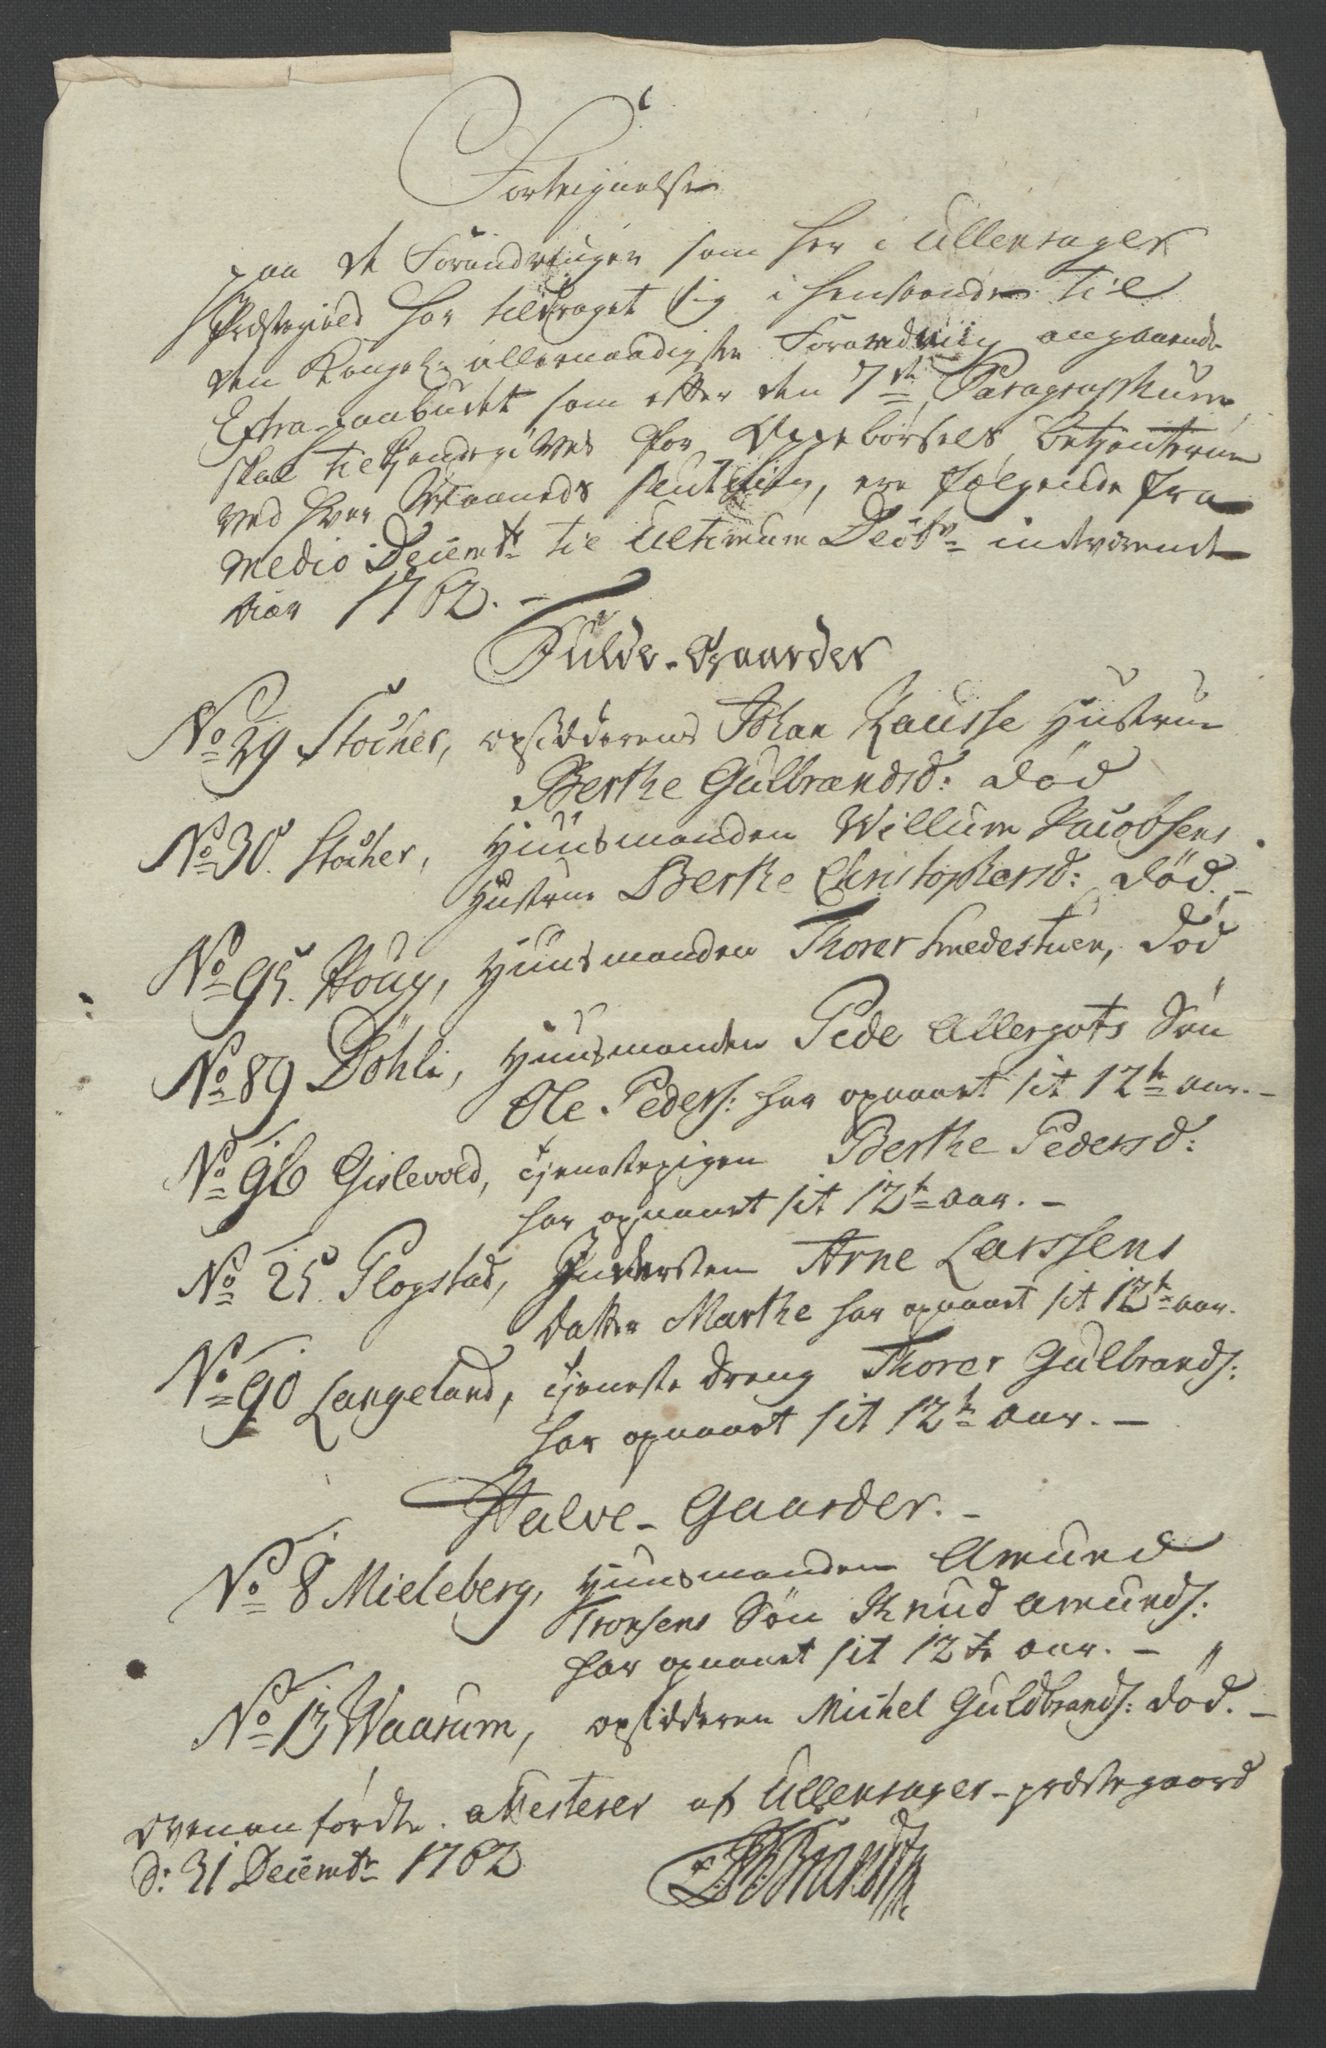 Fortegnelse
paa de Forandringer som her i Ullensager
Præstegield har tildraget sig i henseende til
den Kongel: allernaadigste Forordning angaaende
Extra-paabudet som efter den 7de Paragraphum
skal tilkiendegives for Oppebørsels betienterne
ved hver Maaneds slutning, ere følgende fra
Medio Decembr til Ultimum Decbr indeværende
Aar 1762. -
Fulde-Gaarder
No 29 Stocher, opsidderens Johan Kausse Hustrue
Berthe Gulbrandsd: død
No 30. Stocher, Huusmanden Willum Jacobsens
Hustrue Berthe Christophersd: død. -
No 95. Houg, Huusmanden Thorer Smedestuen, død
No 89 Döhli, Huusmanden Peder Allergots Søn
Ole Peders: har opnaaet sit 12te aar. -
No 96 Gislevold, Tjenestepigen Berthe Pedersd:
har opnaaet sit 12te aar. -
No 25. Flogstad, Indersten Arne Larssens
datter Marthe har opnaaet sit 12te aar.
No 90 Langeland, Tjeneste dreng Thorer Gulbrands:
har opnaaet sit 12te aar. -
Halve-Gaarder. -
No 8 Mieleberg, Huusmanden Amund
Tronsens Søn Knud Amunds:
har opnaaet sit 12te aar. -
No 13 Waarum, opsidderen Michel Guldbrands: død. -
ovenanførdte attesterer af Ullensager-præstegaard
d: 31 Decembr 1762
Brandt